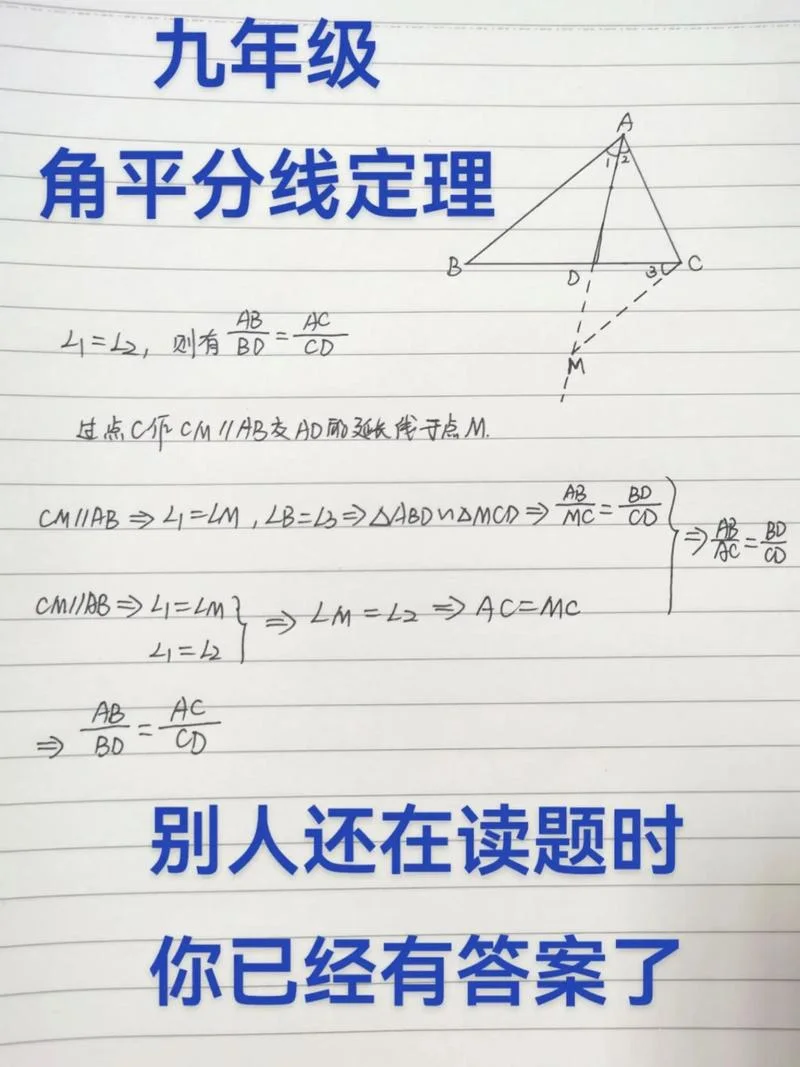 九年级
角平分线定理
A
1 2
B D C
3
M
∠1=∠2, 则有 AB/BD = AC/CD
过点C作CM//AB交AD的延长线于点M.
CM//AB ⇒ ∠1=∠M, ∠B=∠3 ⇒ △ABD∽△MCD ⇒ AB/MC = BD/CD } ⇒ AB/AC = BD/CD
CM//AB ⇒ ∠1=∠M } ⇒ ∠M=∠2 ⇒ AC=MC
∠1=∠2
⇒ AB/BD = AC/CD
别人还在读题时
你已经有答案了